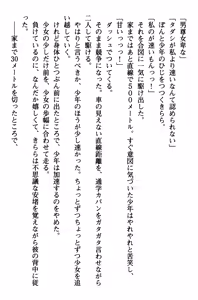 「男尊女卑な」
「タダシが私より速いなんて認められない」
ぽんと少年のひじをつつくきらら。
「私のが速いもんっっ！」
「甘いっっっ！」
それを合図に、一気に駆け出した。
家まではあと直線で５００メートル。すぐ意図に気づいた少年はやれやれと苦笑し、
ダッシュでついてくる。
そのまま競争になった。車の見えない直線距離を、通学カバンをガタガタ言わせながら
二人して駆ける。
やはりと言うべきか、少年のほうが少し速かった。ちょっとずつちょっとずつ少女を追
い越していく。
少年は身体ひとつぶん前に出たところで、少年は加速するのをやめた。
少女の少しだけ前を、少女の歩幅に合わせて走る。
負けているのに、なんだか嬉しくて、きららは不思議な安堵を覚えながら彼の背中に従
っていく。
家まで３０メートルを切ったところで、